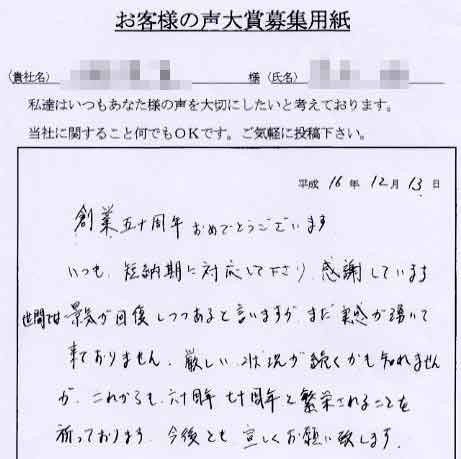 お客様の声大賞募集用紙
(貴社名) 様 (氏名)
私達はいつもあなた様の声を大切にしたいと考えております。
当社に関すること何でもOKです。ご気軽に投稿下さい。
平成 16 年 12 月 13 日
創業五十周年 おめでとうございます
いつも、短納期に対応して下さり、感謝しています
世間では 景気が回復しつつあると言いますが、まだ実感が湧いて
来ておりません。厳しい状況が続くかも知れません
が、これからも、六十周年 七十周年と繁栄されることを
祈っております。今後とも宜しくお願い致します。